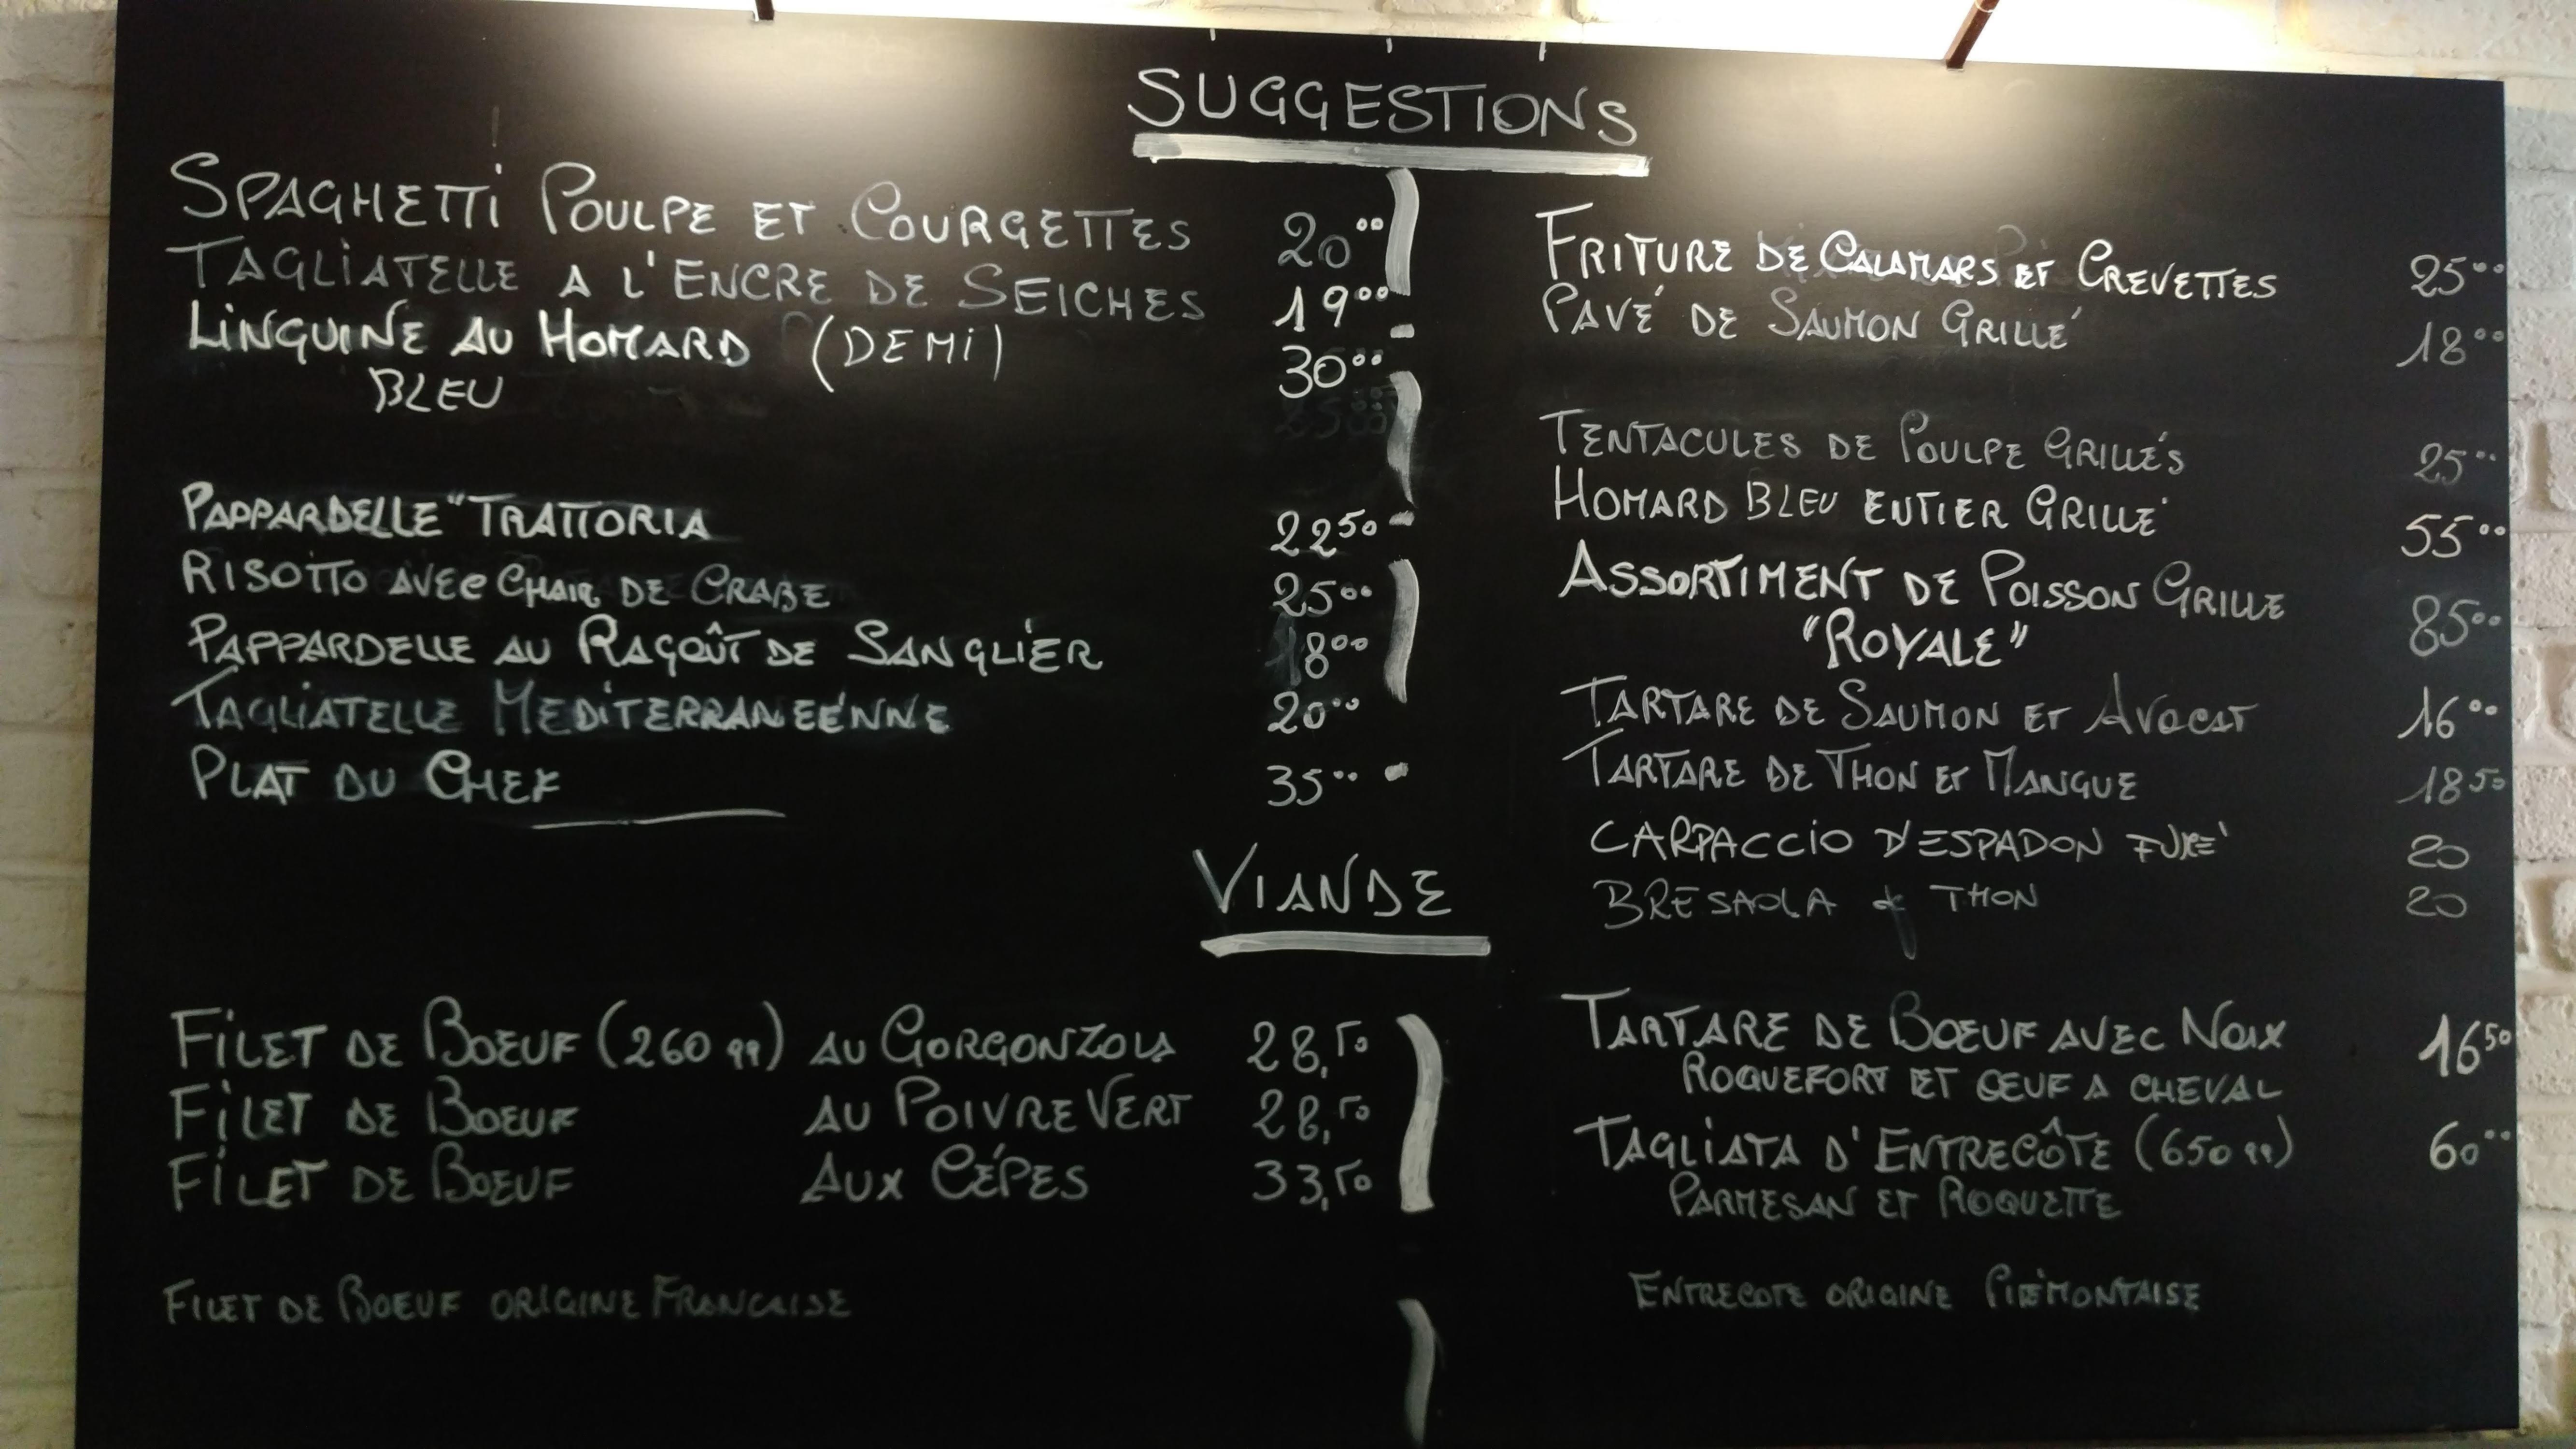 SUGGESTIONS
SPAGHETTI POULPE ET COURGETTES 20°°
TAGLIATELLE A L'ENCRE DE SEICHES 19°°
LINGUINE AU HOMARD (DEMI) 30°°
BLEU
PAPPARDELLE "TRATTORIA 22 50
RISOTTO AVEC CHAIR DE CRABE 25°°
PAPPARDELLE AU RAGOÛT DE SANGLIER 18°°
TAGLIATELLE MEDITERRANEÉNNE 20°°
PLAT DU CHEF 35°°
FRITURE DE CALAMARS ET CREVETTES 25°°
PAVÉ DE SAUMON GRILLÉ 18°°
TENTACULES DE POULPE GRILLÉS 25°°
HOMARD BLEU ENTIER GRILLÉ 55°°
ASSORTIMENT DE POISSON GRILLE 85°°
"ROYALE"
TARTARE DE SAUMON ET AVOCAT 16°°
TARTARE DE THON ET MANGUE 18 50
CARPACCIO D'ESPADON FUMÉ 20
BRESAOLA de THON 20
VIANDE
FILET DE BOEUF (260 gr) AU GORGONZOLA 28,50
FILET DE BOEUF AU POIVRE VERT 28,50
FILET DE BOEUF AUX CÉPES 33,50
FILET DE BOEUF ORIGINE FRANCAISE
TARTARE DE BOEUF AVEC NOIX 16 50
ROQUEFORT ET ŒUF A CHEVAL
TAGLIATA D'ENTRECÔTE (650 gr) 60°°
PARMESAN ET ROQUETTE
ENTRECOTE ORIGINE PIÉMONTAISE